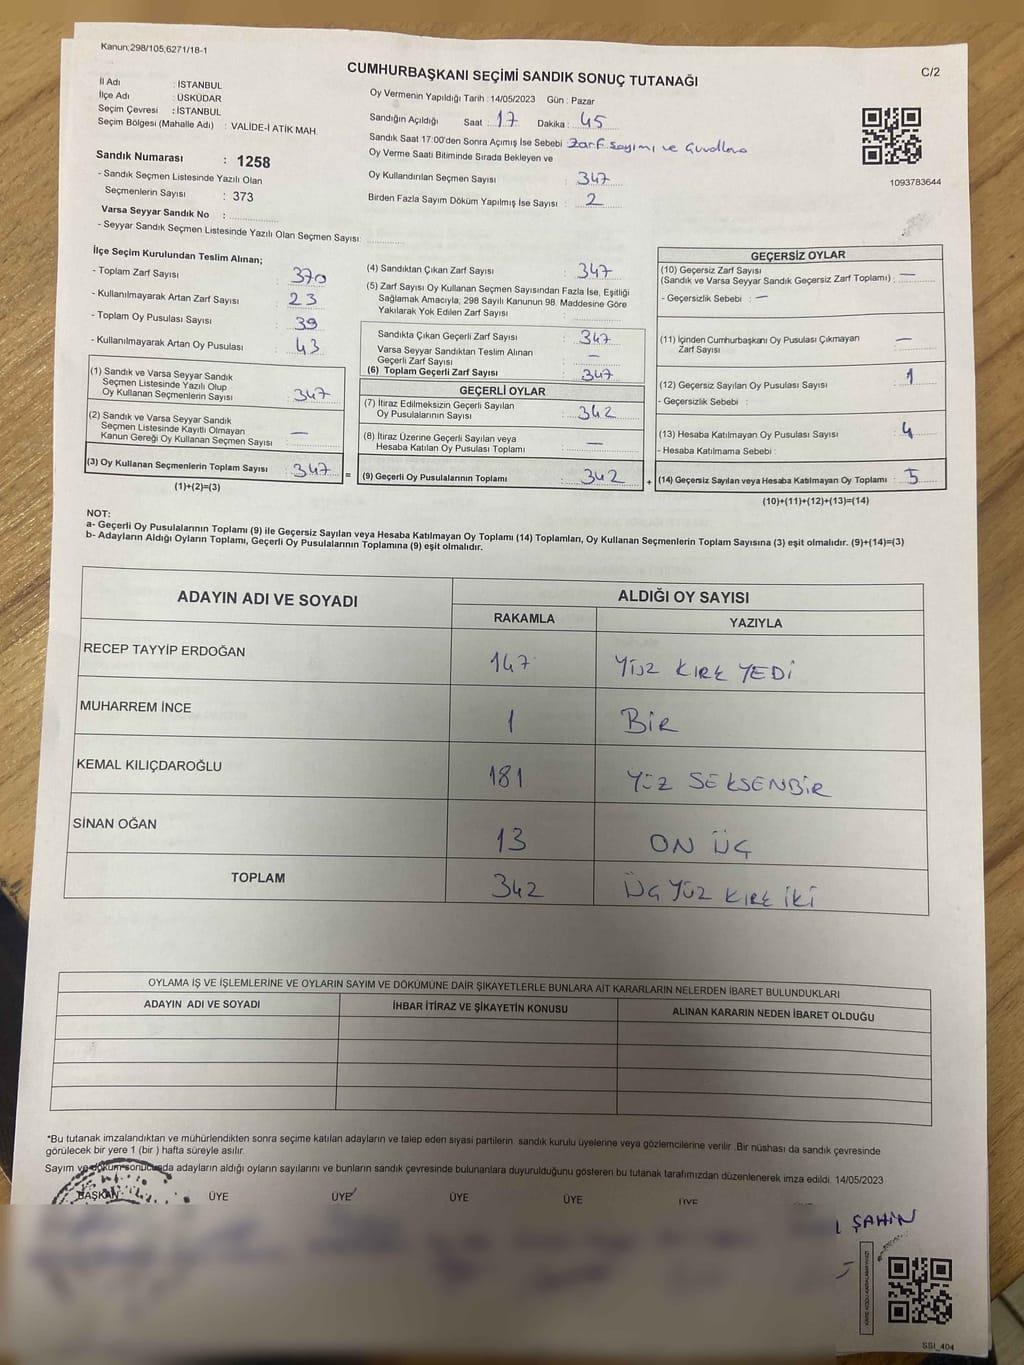 Kanun;298/105,6271/18-1
C/2
CUMHURBAŞKANI SEÇİMİ SANDIK SONUÇ TUTANAĞI
İl Adı : İSTANBUL
İlçe Adı : ÜSKÜDAR
Seçim Çevresi : İSTANBUL
Seçim Bölgesi (Mahalle Adı) : VALİDE-İ ATİK MAH.
Sandık Numarası : 1258
- Sandık Seçmen Listesinde Yazılı Olan
Seçmenlerin Sayısı : 373
Varsa Seyyar Sandık No :
- Seyyar Sandık Seçmen Listesinde Yazılı Olan Seçmen Sayısı:
Oy Vermenin Yapıldığı Tarih : 14/05/2023 Gün : Pazar
Sandığın Açıldığı Saat : 17 Dakika : 45
Sandık Saat 17:00'den Sonra Açımış İse Sebebi Zarf sayımı ve
Oy Verme Saati Bitiminde Sırada Bekleyen ve
Oy Kullandırılan Seçmen Sayısı : 347
Birden Fazla Sayım Döküm Yapılmış İse Sayısı : 2
1093783644
İlçe Seçim Kurulundan Teslim Alınan;
- Toplam Zarf Sayısı : 370
- Kullanılmayarak Artan Zarf Sayısı : 23
- Toplam Oy Pusulası Sayısı : 39
- Kullanılmayarak Artan Oy Pusulası : 43
(1) Sandık ve Varsa Seyyar Sandık
Seçmen Listesinde Yazılı Olup
Oy Kullanan Seçmenlerin Sayısı : 347
(2) Sandık ve Varsa Seyyar Sandık
Seçmen Listesinde Kayıtlı Olmayan
Kanun Gereği Oy Kullanan Seçmen Sayısı : —
(3) Oy Kullanan Seçmenlerin Toplam Sayısı : 347 =
(1)+(2)=(3)
(4) Sandıktan Çıkan Zarf Sayısı : 347
(5) Zarf Sayısı Oy Kullanan Seçmen Sayısından Fazla İse, Eşitliği
Sağlamak Amacıyla, 298 Sayılı Kanunun 98. Maddesine Göre
Yakılarak Yok Edilen Zarf Sayısı :
Sandıkta Çıkan Geçerli Zarf Sayısı : 347
Varsa Seyyar Sandıktan Teslim Alınan
Geçerli Zarf Sayısı : —
(6) Toplam Geçerli Zarf Sayısı : 347
GEÇERLİ OYLAR
(7) İtiraz Edilmeksizin Geçerli Sayılan
Oy Pusulalarının Sayısı : 342
(8) İtiraz Üzerine Geçerli Sayılan veya
Hesaba Katılan Oy Pusulaları Toplamı : —
(9) Geçerli Oy Pusulalarının Toplamı : 342 +
GEÇERSİZ OYLAR
(10) Geçersiz Zarf Sayısı
(Sandık ve Varsa Seyyar Sandık Geçersiz Zarf Toplamı) : —
- Geçersizlik Sebebi : —
(11) İçinden Cumhurbaşkanı Oy Pusulası Çıkmayan
Zarf Sayısı : —
(12) Geçersiz Sayılan Oy Pusulası Sayısı : 1
- Geçersizlik Sebebi :
(13) Hesaba Katılmayan Oy Pusulası Sayısı : 4
- Hesaba Katılmama Sebebi :
(14) Geçersiz Sayılan veya Hesaba Katılmayan Oy Toplamı : 5
(10)+(11)+(12)+(13)=(14)
NOT:
a- Geçerli Oy Pusulalarının Toplamı (9) ile Geçersiz Sayılan veya Hesaba Katılmayan Oy Toplamı (14) Toplamları, Oy Kullanan Seçmenlerin Toplam Sayısına (3) eşit olmalıdır. (9)+(14)=(3)
b- Adayların Aldığı Oyların Toplamı, Geçerli Oy Pusulalarının Toplamına (9) eşit olmalıdır.
ADAYIN ADI VE SOYADI ALDIĞI OY SAYISI
RAKAMLA YAZIYLA
RECEP TAYYİP ERDOĞAN 147 YÜZ KIRK YEDİ
MUHARREM İNCE 1 BİR
KEMAL KILIÇDAROĞLU 181 YÜZ SEKSENBİR
SİNAN OĞAN 13 ON ÜÇ
TOPLAM 342 ÜÇ YÜZ KIRK İKİ
OYLAMA İŞ VE İŞLEMLERİNE VE OYLARIN SAYIM VE DÖKÜMÜNE DAİR ŞİKAYETLERLE BUNLARA AİT KARARLARIN NELERDEN İBARET BULUNDUKLARI
ADAYIN ADI VE SOYADI İHBAR İTİRAZ VE ŞİKAYETİN KONUSU ALINAN KARARIN NEDEN İBARET OLDUĞU
*Bu tutanak imzalandıktan ve mühürlendikten sonra seçime katılan adayların ve talep eden siyasi partilerin sandık kurulu üyelerine veya gözlemcilerine verilir .Bir nüshası da sandık çevresinde
görülecek bir yere 1 (bir ) hafta süreyle asılır.
Sayım ve döküm sonucunda adayların aldığı oyların sayılarını ve bunların sandık çevresinde bulunanlara duyurulduğunu gösteren bu tutanak tarafımızdan düzenlenerek imza edildi. 14/05/2023
BAŞKAN ÜYE ÜYE ÜYE ÜYE ÜYE
ŞAHİN
SSI_404